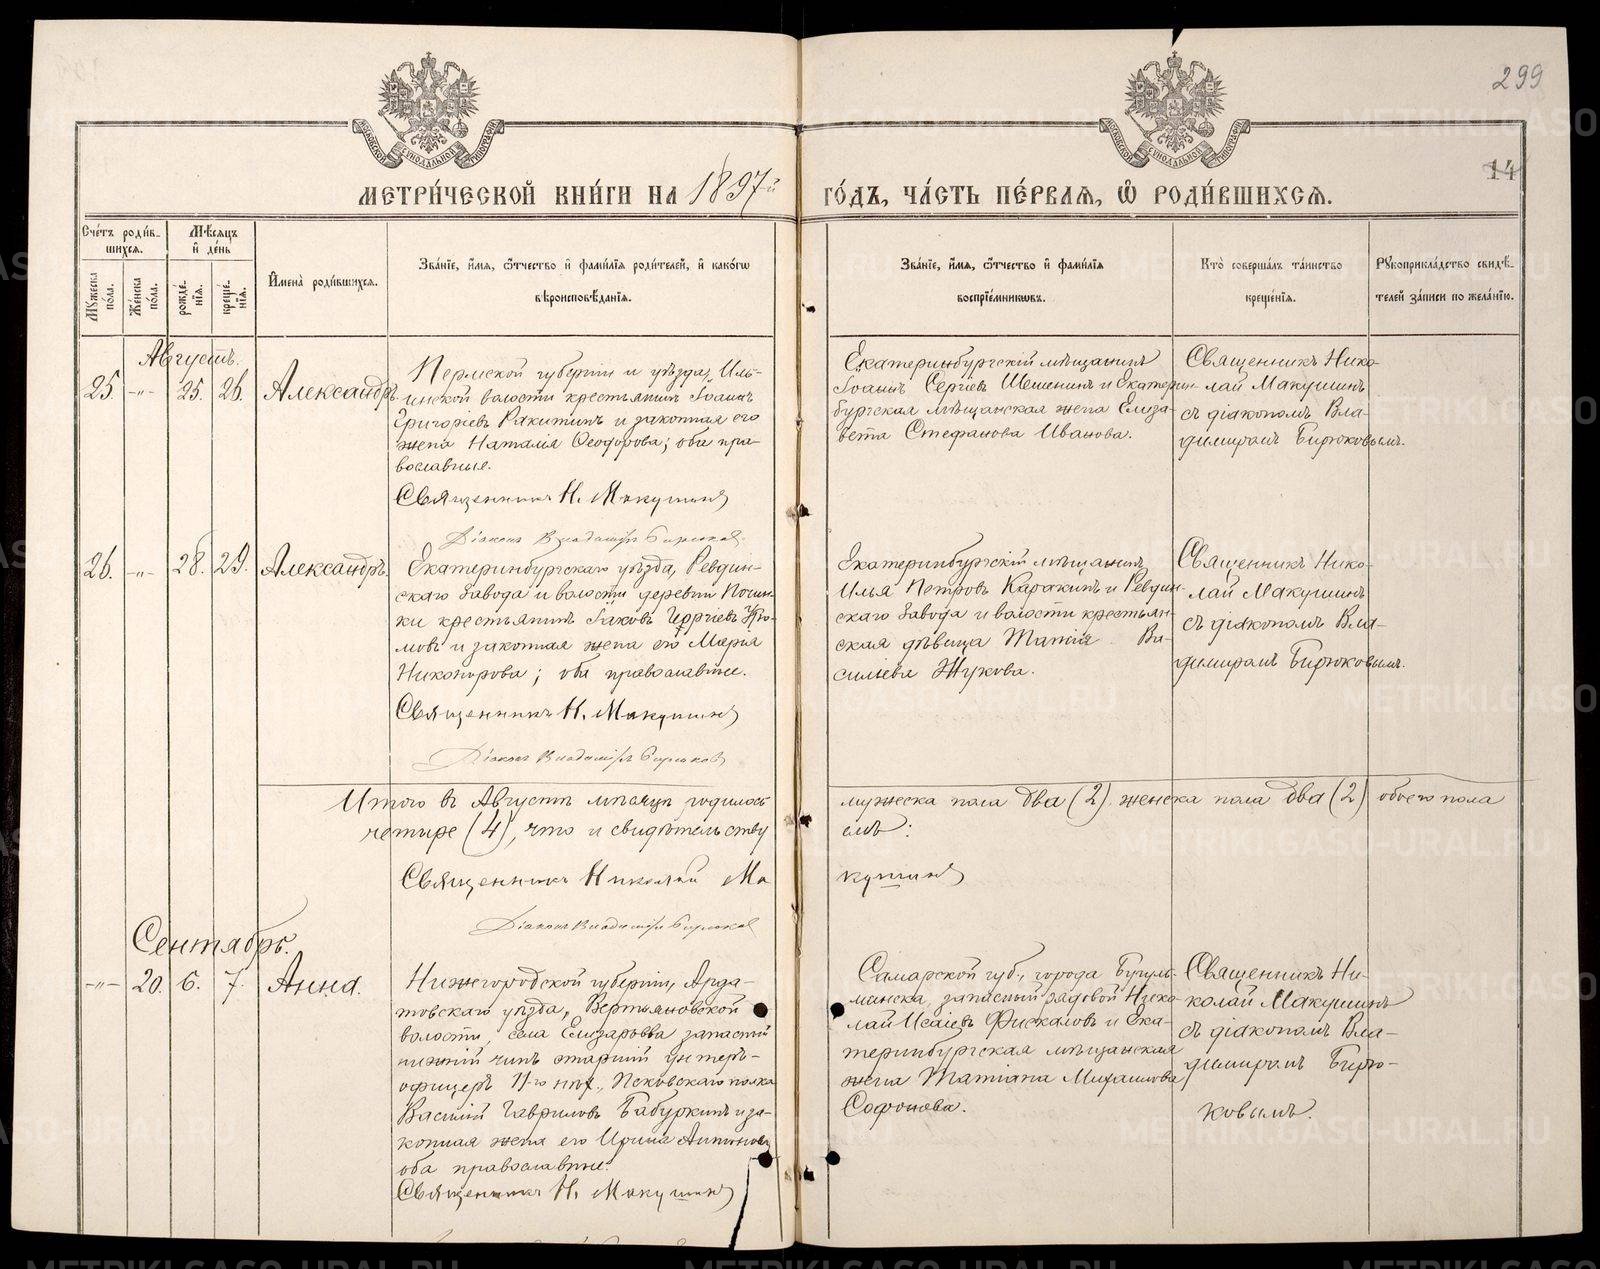 299
14
МЕТРИ́ЧЕСКОЙ КНИ́ГИ НА 1897й ГО́ДЪ, ЧА́СТЬ ПЕ́РВАЯ, Ѽ РОДИ́ВШИХСЯ.
Сче́тъ роди́в-
шихся.
Мѣ́сяцъ
и҆ де́нь
Мꙋ́жеска
по́ла.
Же́нска
по́ла.
рожде́-
нїя.
креще́-
нїя.
И҆мена̀ роди́вшихся.
Зва́нїе, и҆́мя, ѻ҆́тчество и҆ фами́лїя роди́телей, и҆ како́гѡ
вѣроисповѣ́данїя.
Зва́нїе, и҆́мя, ѻ҆́тчество и҆ фами́лїя
воспрїе́мникѡвъ.
Кто̀ соверша́лъ та́инство
креще́нїя.
Рꙋкоприкла́дство свидѣ́-
телей за́писи по жела́нїю.
Августъ.
25. -„- 25. 26. Александръ
Пермской губерніи и уѣзда, Иль-
инской волости крестьянинъ Іоаннъ
Григоріевъ Ракитинъ и законная его
жена Наталія Ѳеодорова; оба пра-
вославные.
Священникъ Н. Макушинъ
Діаконъ Владиміръ Бирюковъ
Екатеринбургскій мѣщанинъ
Іоаннъ Сергіевъ Шешенинъ и Екатерин-
бургская мѣщанская жена Елиза-
вета Стефанова Иванова.
Священникъ Нико-
лай Макушинъ
съ діакономъ Вла-
димиромъ Бирюковымъ.
26. -„- 28. 29. Александръ.
Екатеринбургскаго уѣзда, Ревдин-
скаго завода и волости деревни Почин-
ки крестьянинъ Іаковъ
и законная жена его Марія
Никонорова; оба православные.
Священникъ Н. Макушинъ
Діаконъ Владиміръ Бирюковъ
Екатеринбургскій мѣщанинъ
Илья Петровъ Каракинъ и Ревдин-
скаго завода и волости крестьян-
ская дѣвица Ва-
сильева Жукова.
Священникъ Нико-
лай Макушинъ
съ діакономъ Вла-
димиромъ Бирюковымъ.
Итого въ Августѣ мѣсяцѣ родилось мужеска пола два (2) женска пола два (2) обоего пола
четыре (4), что и свидѣтельствуемъ:
Священникъ Николай Макушинъ
Діаконъ Владиміръ Бирюковъ
Сентябрь.
-„- 20. 6. 7. Анна.
Нижегородской губерніи, Арда-
товскаго уѣзда, Вертьяновской
волости, села Елизарьева запасный
нижній чинъ старшій унтеръ-
офицеръ 11-го пѣх. Псковскаго полка
Василій Гавриловъ Бабуркинъ и за-
конная жена его Ирина Антонова
оба православные.
Священникъ Н. Макушинъ
Самарской губ., города Бугуль-
минска, запасный рядовой Нико-
лай Исаіевъ Фискаловъ и Ека-
теринбургская мѣщанская
жена Татіана Михаилова
Софонова.
Священникъ Ни-
колай Макушинъ
съ діакономъ Вла-
димиромъ Бирю-
ковымъ.
METRIKI.GASO-URAL.RU